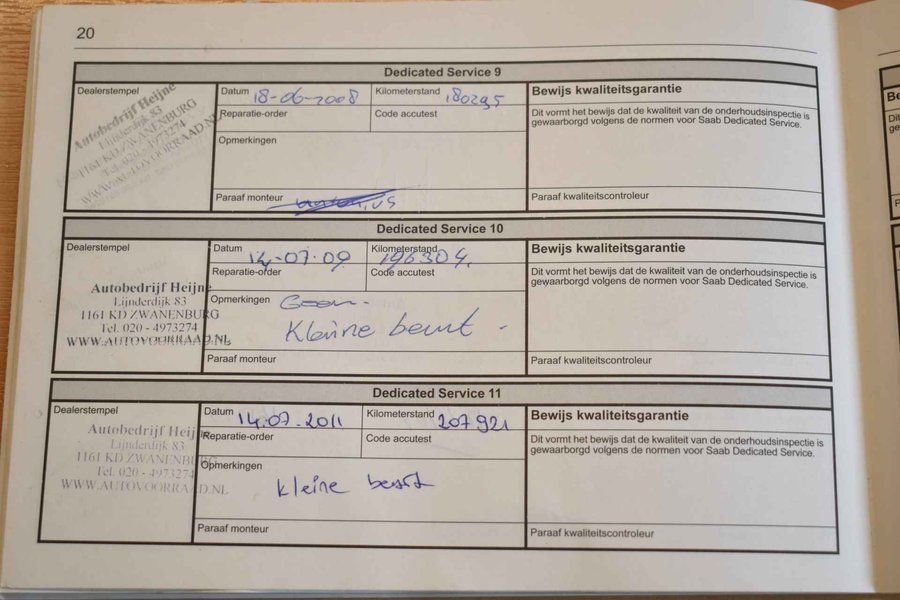 20
Dedicated Service 9
Dealerstempel
Autobedrijf Heijne
Lijnderdijk 83
1161 KD ZWANENBURG
Tel. 020 - 4973274
WWW.AUTOVOORRAAD.NL
Datum 18-06-2008
Kilometerstand 180295
Reparatie-order
Code accutest
Opmerkingen
Paraaf monteur
Bewijs kwaliteitsgarantie
Dit vormt het bewijs dat de kwaliteit van de onderhoudsinspectie is
gewaarborgd volgens de normen voor Saab Dedicated Service.
Paraaf kwaliteitscontroleur
Dedicated Service 10
Dealerstempel
Autobedrijf Heijne
Lijnderdijk 83
1161 KD ZWANENBURG
Tel. 020 - 4973274
WWW.AUTOVOORRAAD.NL
Datum 14-07-09
Kilometerstand 196304.
Reparatie-order
Code accutest
Opmerkingen Geen -
Kleine beurt -
Paraaf monteur
Bewijs kwaliteitsgarantie
Dit vormt het bewijs dat de kwaliteit van de onderhoudsinspectie is
gewaarborgd volgens de normen voor Saab Dedicated Service.
Paraaf kwaliteitscontroleur
Dedicated Service 11
Dealerstempel
Autobedrijf Heij
Lijnderdijk 83
1161 KD ZWANENBURG
Tel. 020 - 4973274
WWW.AUTOVOORRAAD.NL
Datum 14.07.2011
Kilometerstand 207921
Reparatie-order
Code accutest
Opmerkingen
kleine beurt
Paraaf monteur
Bewijs kwaliteitsgarantie
Dit vormt het bewijs dat de kwaliteit van de onderhoudsinspectie is
gewaarborgd volgens de normen voor Saab Dedicated Service.
Paraaf kwaliteitscontroleur